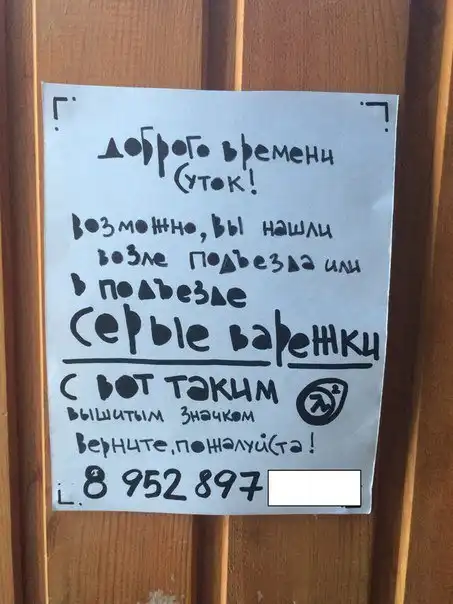 доброго времени
Суток!
возможно, вы нашли
возле подъезда или
в подъезде
серые варежки
с вот таким λ²
вышитым значком
верните, пожалуйста!
8 952 897